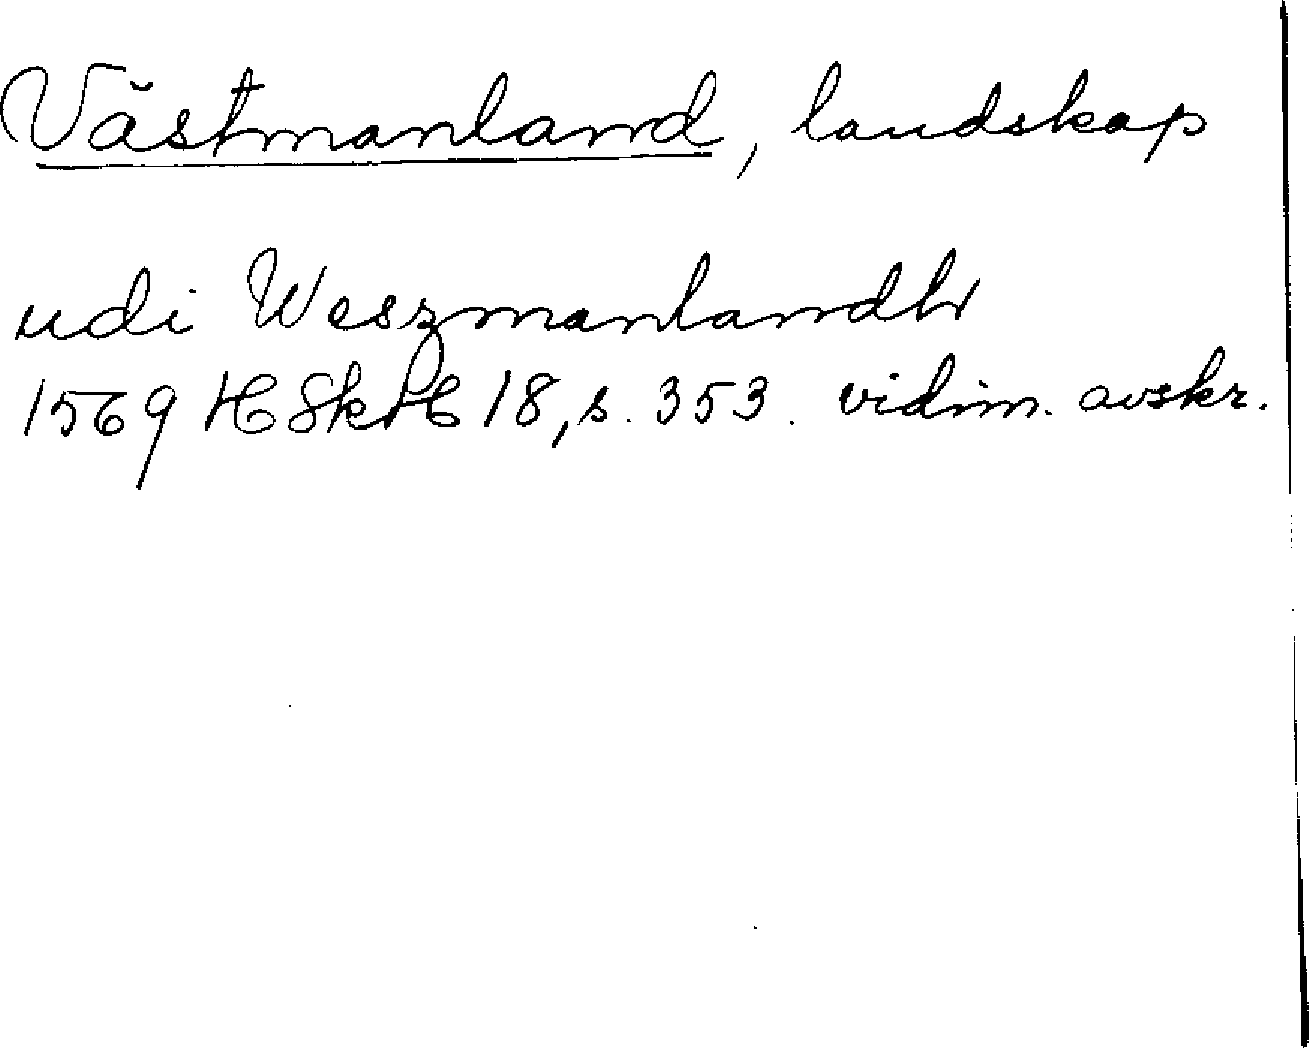 Västmanland, landskap
udi Weszmanlandh
1569 HSkH 18, s. 353. vidim. avskr.